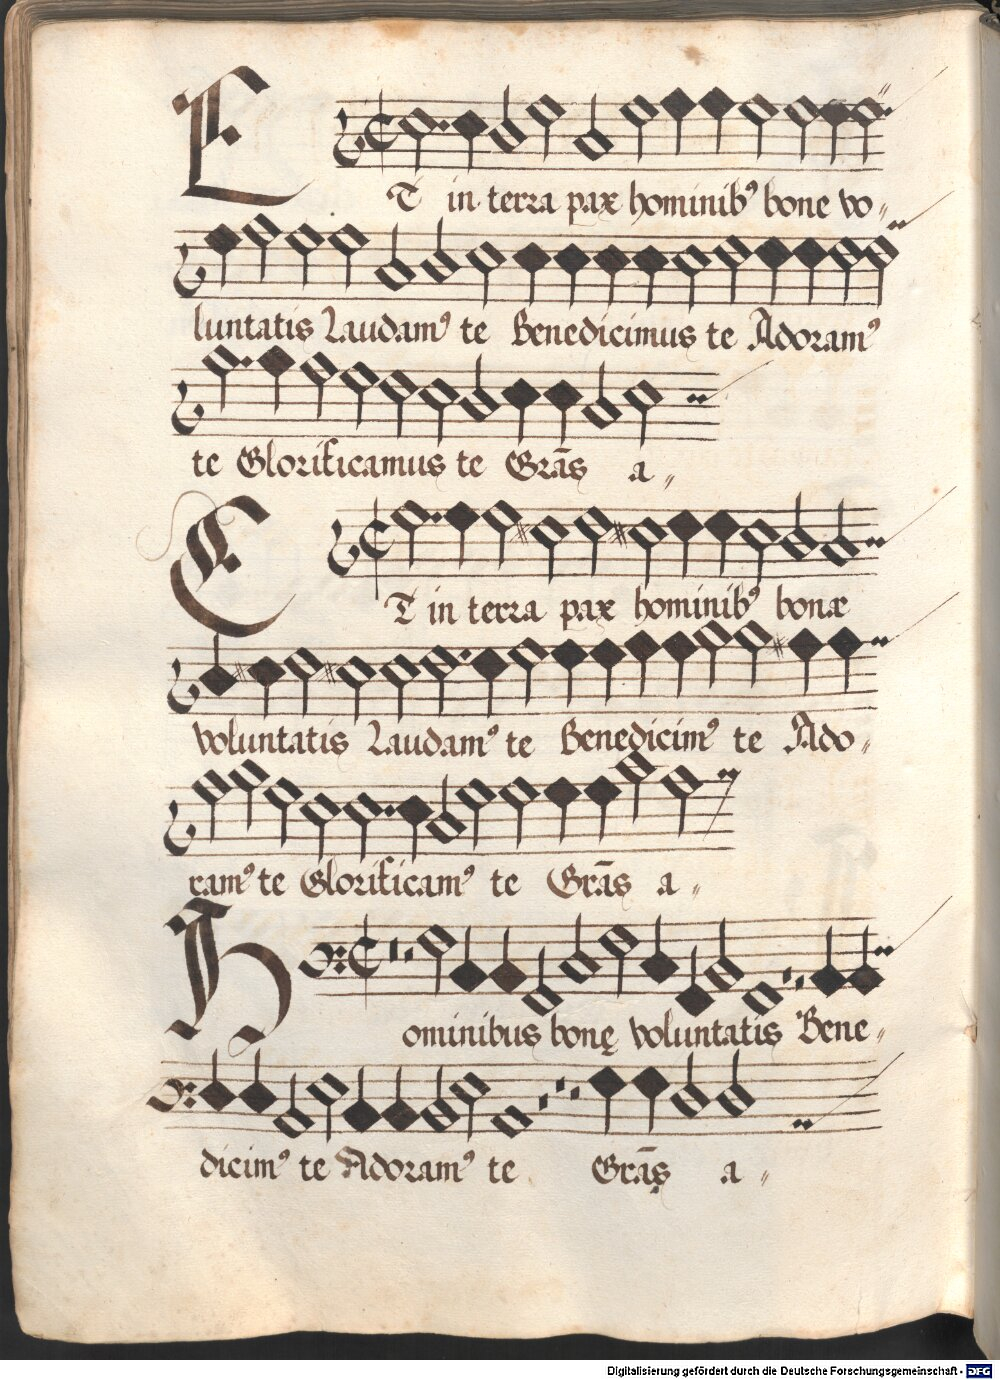 ET in terra pax hominibꝰ bone vo〃
luntatis Laudamꝰ te Benedicimus te Adoramꝰ
te Glorificamus te Grãs a〃
ET in terra pax hominibꝰ bonæ
voluntatis Laudamꝰ te Benedicimꝰ te Ado〃
ramꝰ te Glorificamꝰ te Grãs a〃
Hominibus bonę voluntatis Bene〃
dicimꝰ te Adoramꝰ te Grãs a〃
Digitalisierung gefördert durch die Deutsche Forschungsgemeinschaft - DFG